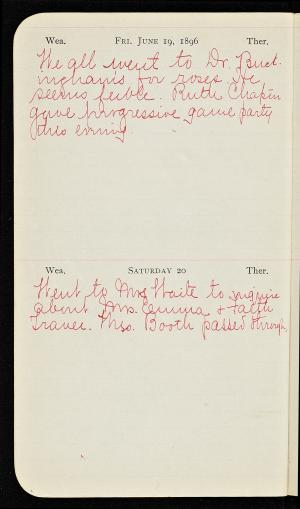 Wea. FRI. JUNE 19, 1896 Ther.
We all went to Dr. Buck-
inghams for roses. He
seems feible. Ruth Chapin
gave progressive game party
this evening.
Wea. SATURDAY 20 Ther.
Went to Mrs Waite to inquire
about Mrs. Emma & Faith
Mrs. Booth passed through.